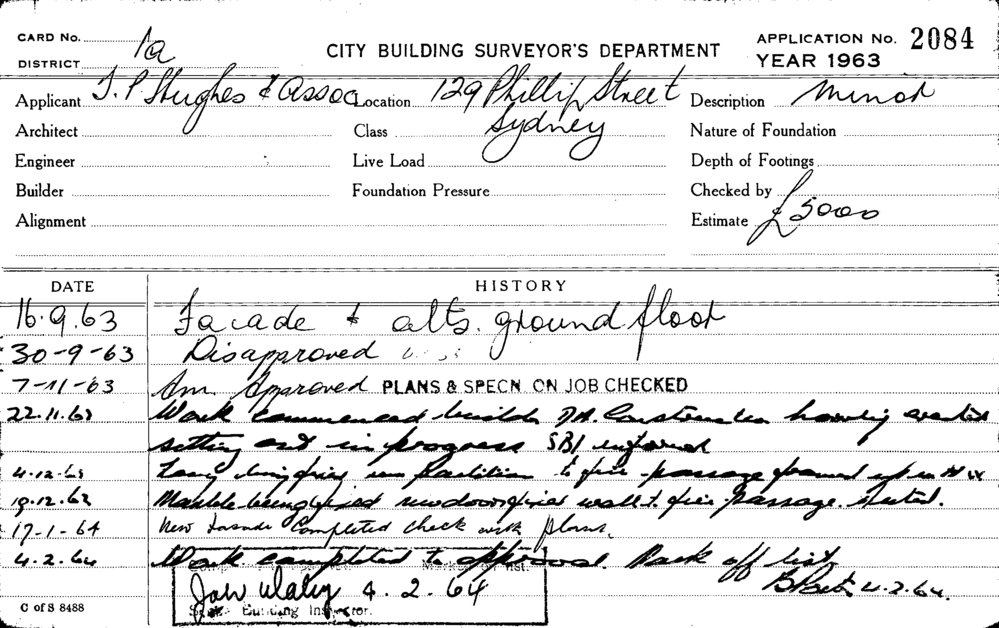 CARD No. 1a
DISTRICT
CITY BUILDING SURVEYOR'S DEPARTMENT
APPLICATION No. 2084
YEAR 1963
Applicant T. P Hughes & Assoc Location 129 Phillip Street Description Minor
Architect Class Sydney Nature of Foundation
Engineer Live Load Depth of Footings
Builder Foundation Pressure Checked by
Alignment Estimate £5000
DATE HISTORY
16.9.63 Facade & alts. ground floor
30-9-63 Disapproved
7-11-63 Am. Approved PLANS & SPECN. ON JOB CHECKED
22.11.63 Work commenced builder hoarding erected
setting out in progress SBI informed
4.12.63 partition to fire passage framed up in
19.12.63 Marble being fixed new door wall to fire passage.
17-1-64 New Facade Completed check with plans.
4.2.64 Work completed to approval. Mark off list
4.2.64.
4.2.64
Building Inspector.
C of S 8488